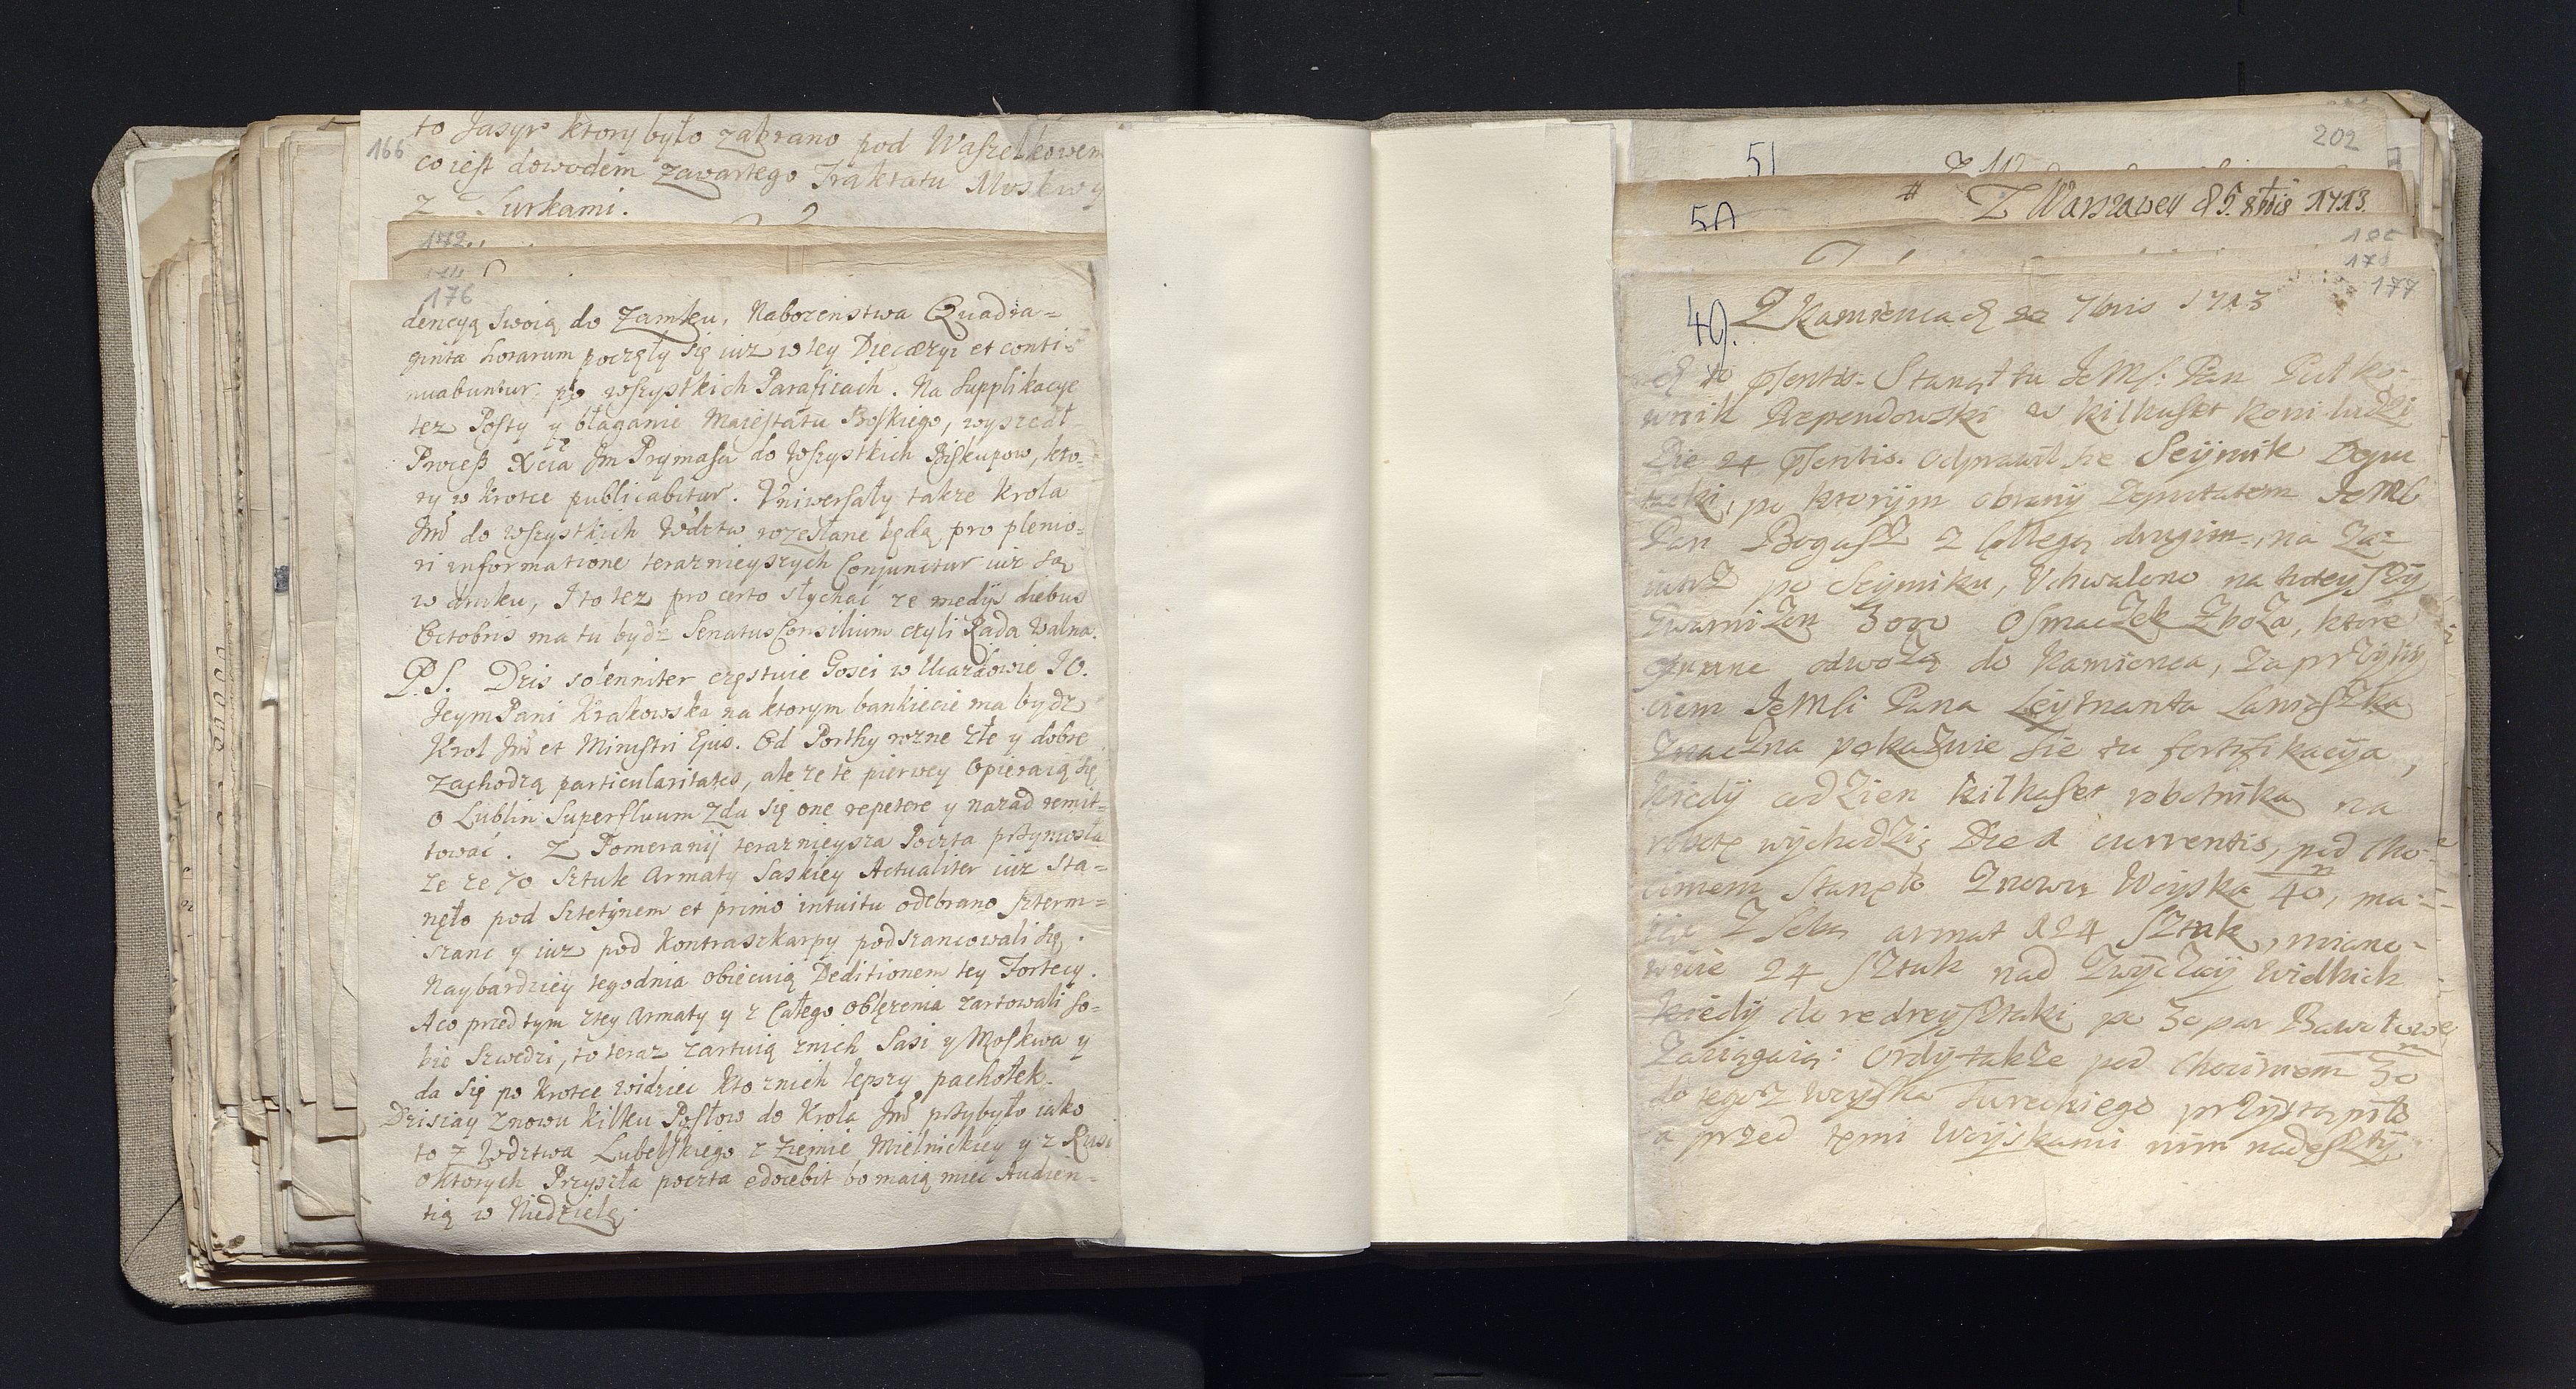 166
to Jasyr ktory było zabrano pod Waszelkowem
co iest dowodem zawartego Traktatu Moskwy
z Turkami.
172
176
dencyą swoią do Zamku, Nabozenstwa Quadra=
ginta horarum poczęły się iuz w tey Diecæzyi et conti=
nuabuntur po wszystkich Parafiach. Na Supplikacye
tez Posty y błaganie Maiestatu Boskiego, wyszedł
Proceß Xcia Jm Prymasa do Wszystkich Biskupow, kto=
ry w krotce publicabitur. Vniwersały takze Krola
Jmci do Wszystkich Wdztw rozesłane będą pro plenio=
ri informatione teraznieyszych Conjunctur iuz są
w druku, I to tez pro certo słychać ze medijs diebus
Octobris ma tu bydz Senatus Consilium czyli Rada Walna.
P.S. Dzis solenniter częstuie Gosci w Uiazdowie JO.
JeymPani Krakowska na ktorym bankiecie ma bydz
Krol Jmc et Ministri Ejus. Od Porthy rozne złe y dobre
zachodzą particularitates, ale ze te pierwey opieraią się
o Lublin Superfluum zda się one repetere y nazad remit=
tować. Z Pomeranij teraznieysza Poczta przyniosła
ze ze 70 Sztuk Armaty Saskiey Actualiter iuz sta=
nęło pod Sztetynem et primo intuitu odebrano Szterm=
szanc y iuz pod Kontraszkarpy podszancowali się.
Naybardziey tegodnia obiecuią Deditionem tey Fortecy.
A co przed tym z tey Armaty y z Całego oblęzenia zartowali so=
bie Szwedzi, to teraz zartuią z nich Sasi y Moskwa y
da się po krotce widziec kto z nich lepszy pachołek.
Dzisiay znowu kilku Posłow do Krola Jmci przybyło iako
to z Wdztwa Lubelskiego z Ziemie Mielnickiey y z Rusi
o ktorych Przyszła poczta edocebit bo maią miec Audien=
tią w Niedzielę.
202
51
50
# Z Warszawey d 5. 8bris 1713.
178
177
49. Z Kamienca d 7bris 1713
psentis. Stanął tu JeMs: Pan Pułko=
wnik Rzependowski w kilkuset koni ludzi
Die 24 psentis. Odprawił sie Seijmik Depu
tacki, po ktorym obrany Deputatem JeMs
Pan Bogusz z Collegą drugim, na Za=
iutrz po Seijmiku, Vchwalono na tuteyszy
Gwarnizon 3000 Osmaczek Zboza, ktore
odwozą do Kamienca, za przybij
ciem JeMsci Pana Leijtnanta Laniaszka
Znaczna pokazuie sie tu fortifikacija,
kiedy codzien kilkaset robotnika na
robotę wychodzi; Die 1 currentis, pod Cho=
cimem stanęło Znowu Woijska 40 m, ma=
ią z sobą armat 124 sztuk, miano=
wicie 24 sztuk nad Zwyczaij wielkich
kiedy do iedney sztuki po 30 par Bawołow
Zaciągaią: Ordy takze pod Chocimem 30 m
do tegosz woyska Tureckiego przystąpiło
a przed temi Woijskami nim nadeszły